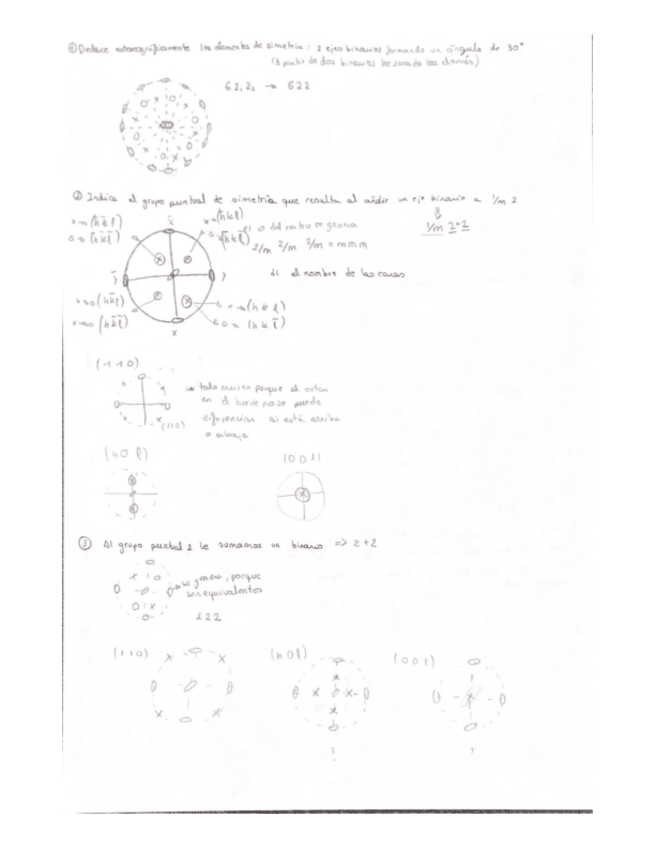 ① Deduce estereográficamente los elementos de simetría: 2 ejes binarios formando un ángulo de 30°
(A partir de dos binarios he sacado los demás)
6 2₁ 2₂ → 622
② Indica el grupo puntual de simetría que resulta al añadir un eje binario a 1/m 2
1/m 2+2
x → (h̄ k̄ l)
o → (h̄ k̄ l̄)
El o del centro se genera
2/m 2/m 2/m = mmm
el nombre de las caras
x̄
ȳ
y
x
x → (h k l)
o → (h k l̄)
(110)
→ todo cruces porque al estar
en el borde no se puede
diferenciar si está arriba
o abajo
(110)
(h 0 l)
(001)
③ Al grupo puntual 2 le sumamos un binario => 2+2
→ se genera, porque
son equivalentes
222
(110)
(h0l)
(001)
?
?